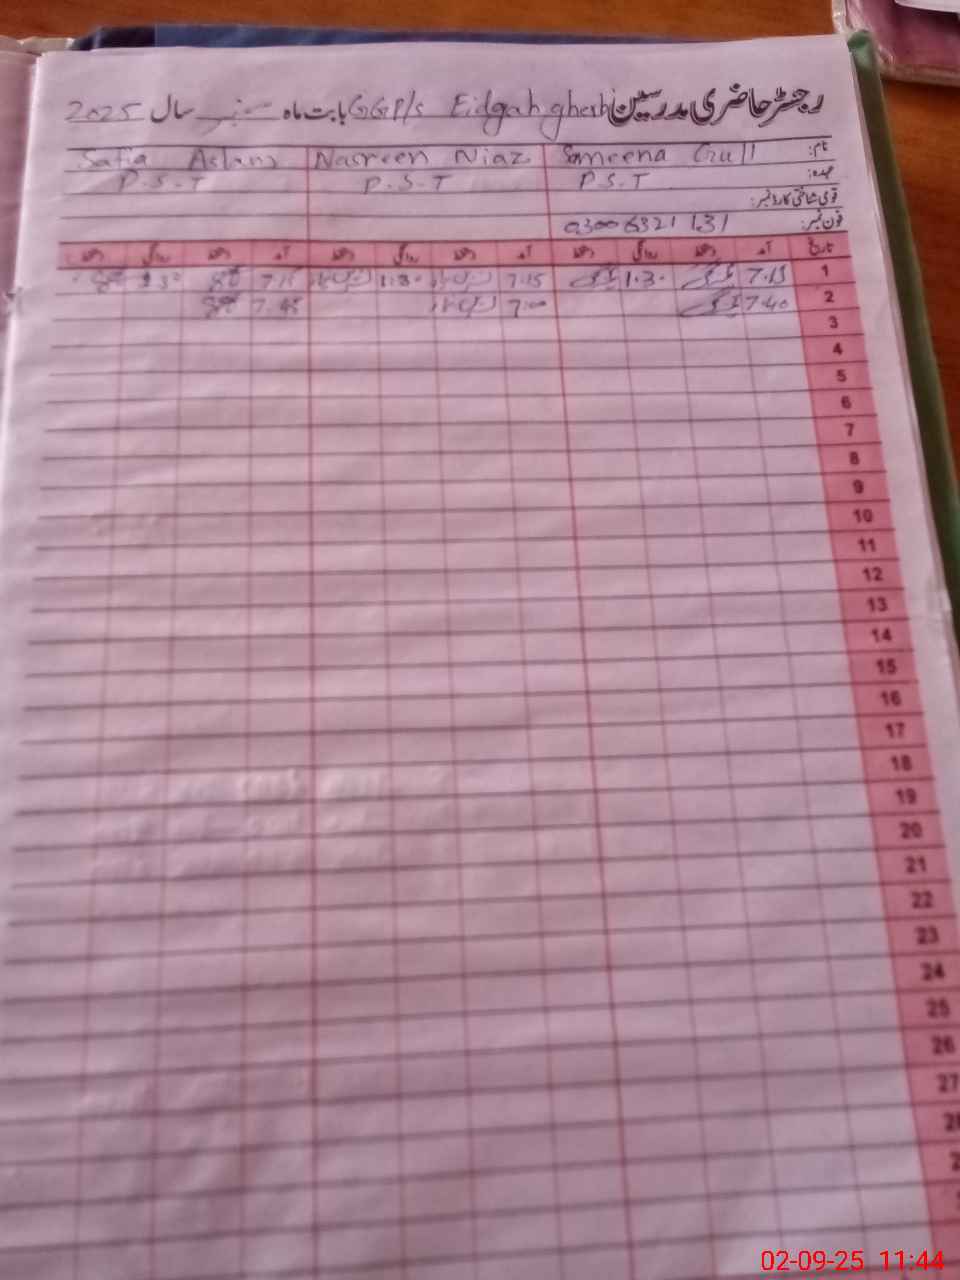 رجسٹر حاضری مدرسین GGP/s Eidgah gharbi بابت ماہ ستمبر سال 2025
نام: Sameena Gull Nasreen Niaz Safia Aslam
عہدہ: P.S.T P.S.T P.S.T
قومی شناختی کارڈ نمبر:
فون نمبر: 03006321131
تاریخ آمد دستخط روانگی دستخط آمد دستخط روانگی دستخط آمد دستخط روانگی دستخط
1 7.15 1.30 7.15 1.30 7.15
2 7.40 7.00 7.45
3
4
5
6
7
8
9
10
11
12
13
14
15
16
17
18
19
20
21
22
23
24
25
26
27
02-09-25 11:44